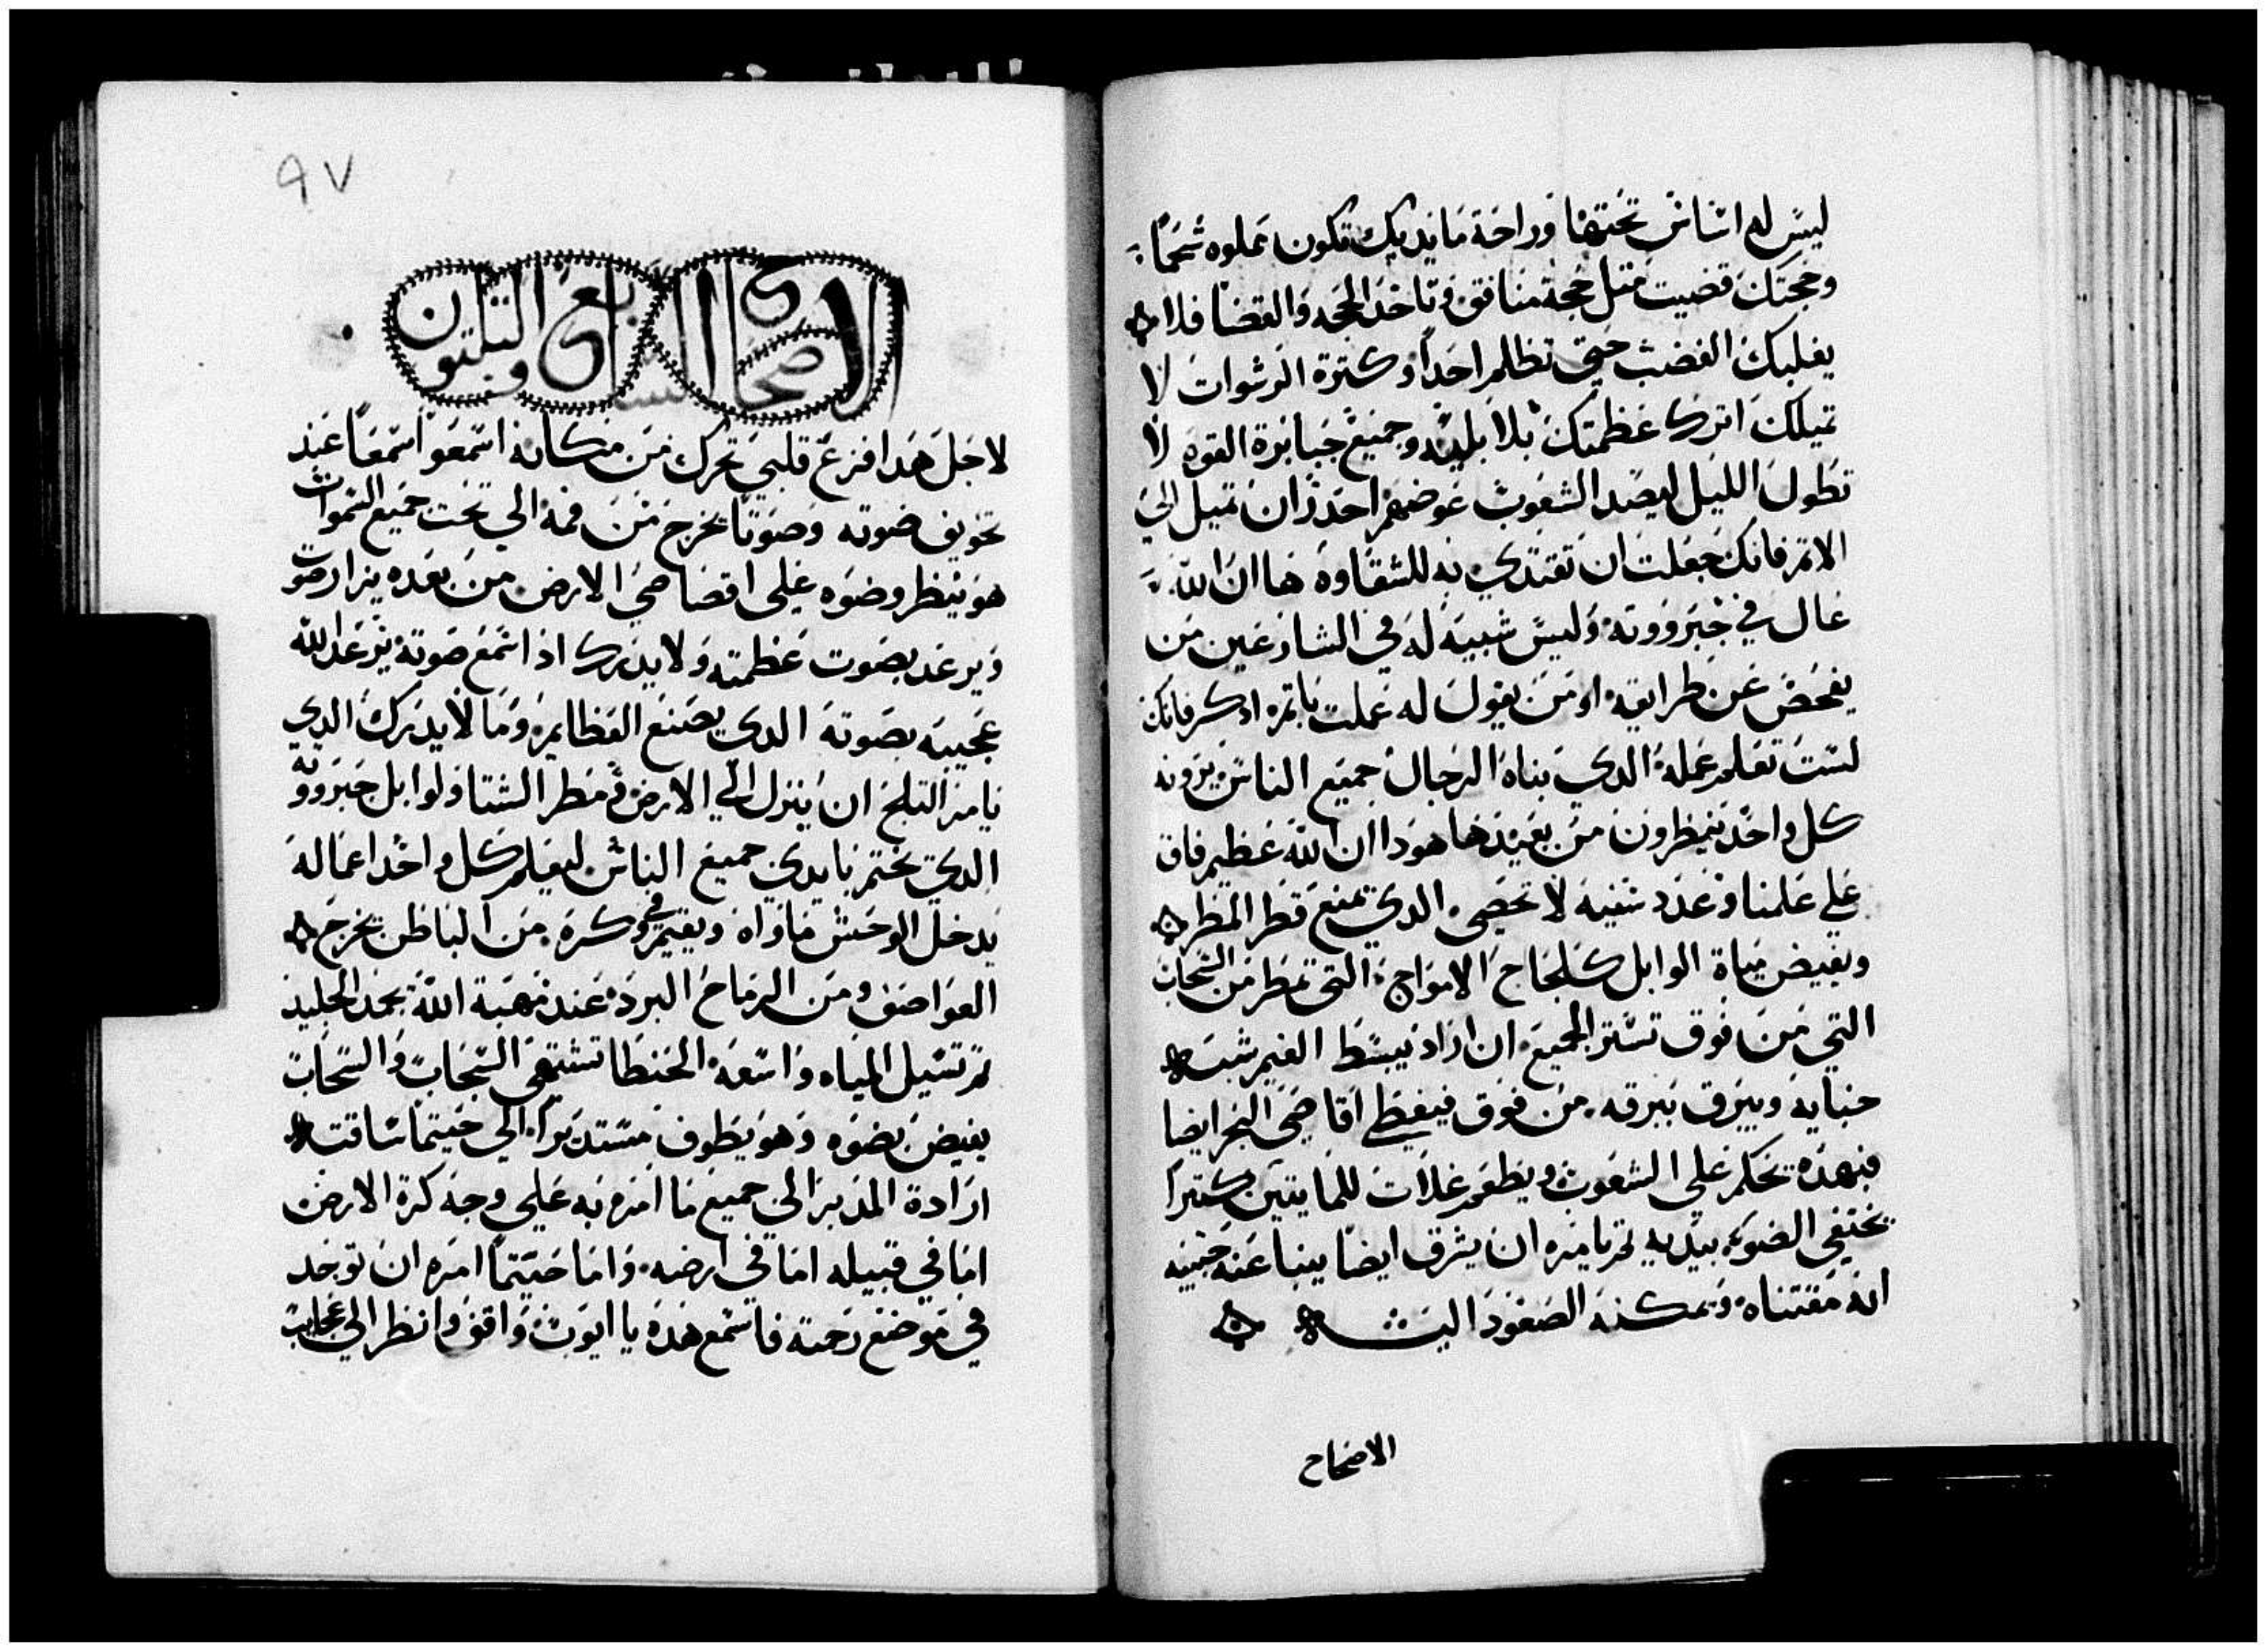 ليس له اساس تحتها وراحة مايديك تكون مملوه شحمًا
وحجتك قضيت متل حجة منافق وتاخد الحجه والقضا فلا
يغلبك الغضب حتي تظلم احدًا وكترة الرشوات لا
تميلك اترك عظمتك بلا بليه وجميع جبابرة القوه لا
تطول الليل ليصد الشعوب عوضهم احدر ان تميل الي
الاتم فانك جعلت ان تقتدي به للشقاوه ها ان الله
عال في جبرووته وليس شبيه له في الشارعين من
يفحص عن طرايقه او من يقول له عملت باتم ادكر فانك
لست تعلم عمله الدي بناه الرجال جميع الناس يرونه
كل واحد ينظرون من بعيد ها هودا ان الله عظيم فاق
علي علمنا وعدد سنيه لا تحصى الدي يمنع قطر المطر
ويفيض مياة الوابل كلجاج الامواج التي تمطر من السحاب
التي من فوق تستر الجميع ان اراد يبسط الغيم شبه
خبايه ويبرق ببرقه من فوق فيغطي اقاصي البحر ايضا
فبهده يحكم علي الشعوب ويطعم غلات للمايتين كتيرا
يختفي الضو بيديه تم يامره ان يشرق ايضا ينبا عنه حبيبه
انه مقتناه ويمكنه الصعود اليه
الاصحاح
٩٧
الاصحاح السابع والتلتون
لاجل هدا فزع قلبي تحرك من مكانه اسمعوا سمعًا عند
تخويف صوته وصوتا يخرج من فمه الي تحت جميع السموات
هو ينظر وضوه علي اقصاصي الارض من بعده يزار صوت
ويرعد بصوت عظمته ولا يدرك ادا سمع صوته يرعد الله
عجيبه بصوته الدي يصنع العظايم وما لا يدرك الدي
يامر التلج ان ينزل الي الارض ومطر الشتا ولوابل جبرووته
الدي يختم بايدي جميع الناس ليعلم كل واحد اعماله
يدخل الوحش ماواه ويقيم في وكره من الباطن تخرج
العواصف ومن الرماح البرد عند مهبة الله يجمد الجليد
تم تسيل المياه واسعه الحنطا تشتهي السحاب والسحاب
يفيض بضوه وهو يطوف مستديرا الي حيتما ساقته
ارادة المدبر الي جميع ما امره به علي وجه كرة الارض
اما في قبيله اما في ارضه واما حيتما امره ان توجد
في موضع رحمته فاسمع هده يا ايوب واقف وانظر الي عجايب